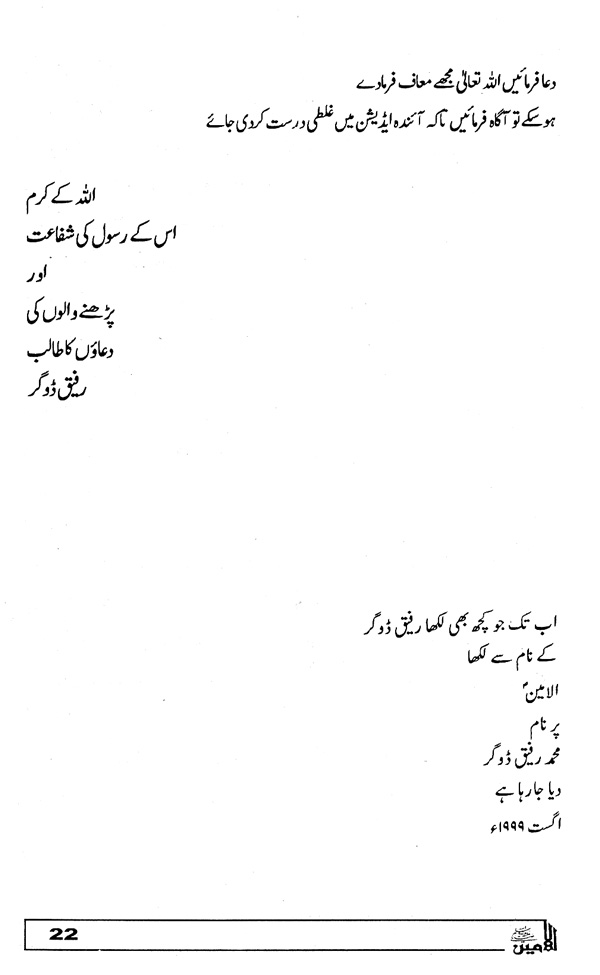 دعا فرمائیں اللہ تعالیٰ مجھے معاف فرمادے
ہو سکے تو آگاہ فرمائیں تاکہ آئندہ ایڈیشن میں غلطی درست کر دی جائے
اللہ کے کرم
اس کے رسول کی شفاعت
اور
پڑھنے والوں کی
دعاؤں کا طالب
رفیق ڈوگر
اب تک جو کچھ بھی لکھا رفیق ڈوگر
کے نام سے لکھا
الامینؐ
پر نام
محمد رفیق ڈوگر
دیا جا رہا ہے
اگست ۱۹۹۹ء
22
الامین ﷺ